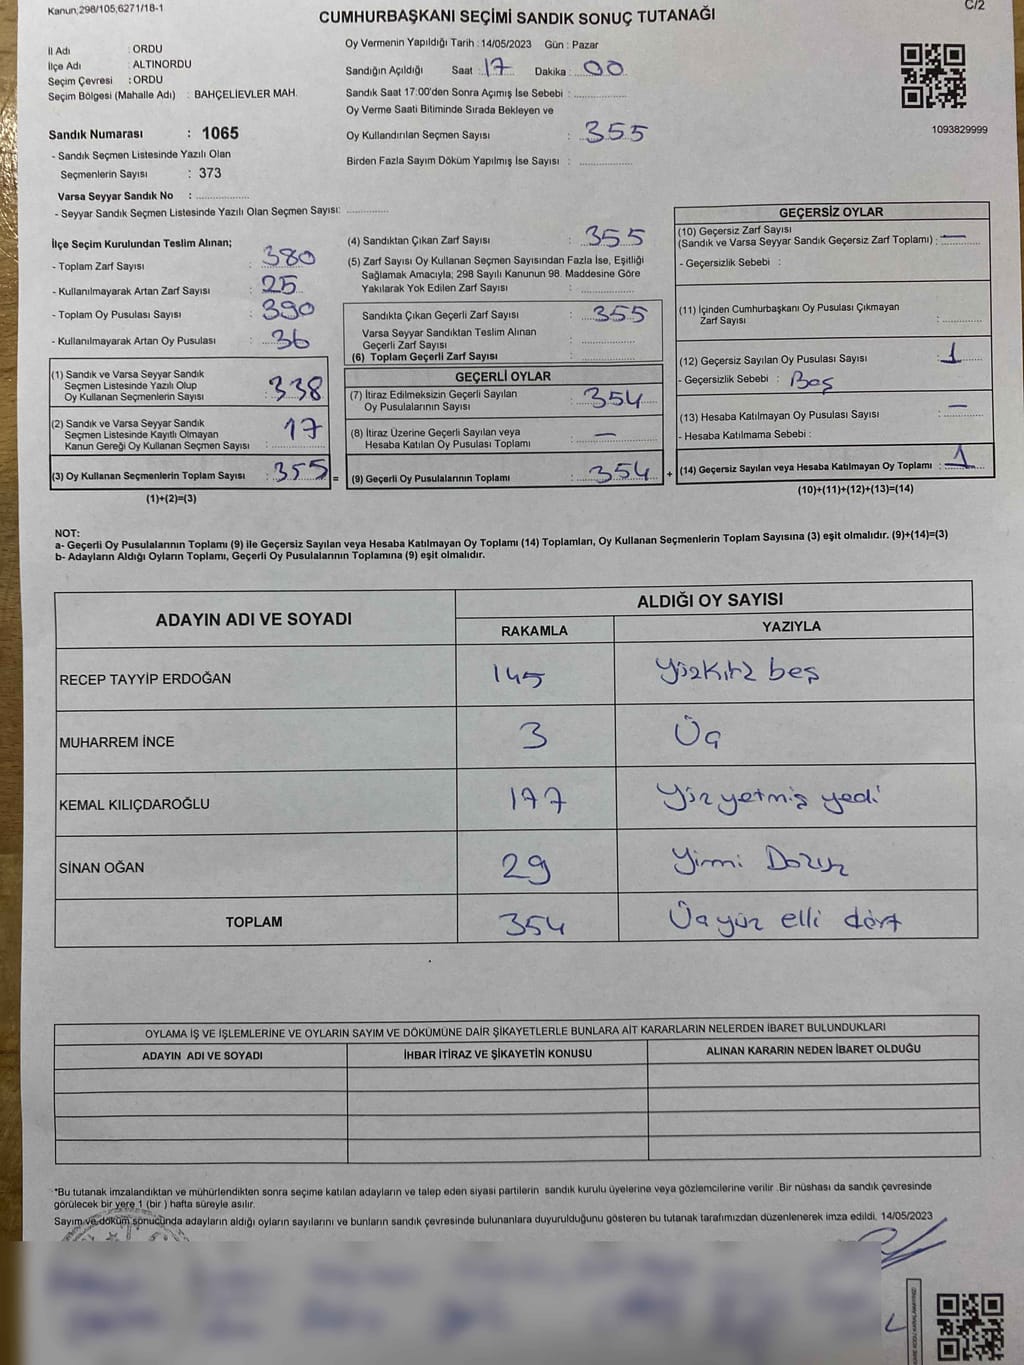 Kanun,298/105,6271/18-1
C/2
CUMHURBAŞKANI SEÇİMİ SANDIK SONUÇ TUTANAĞI
İl Adı : ORDU
İlçe Adı : ALTINORDU
Seçim Çevresi : ORDU
Seçim Bölgesi (Mahalle Adı) : BAHÇELİEVLER MAH.
Oy Vermenin Yapıldığı Tarih : 14/05/2023 Gün : Pazar
Sandığın Açıldığı Saat : 17 Dakika : 00
Sandık Saat 17:00'den Sonra Açımış İse Sebebi :
Oy Verme Saati Bitiminde Sırada Bekleyen ve
Oy Kullandırılan Seçmen Sayısı : 355
Birden Fazla Sayım Döküm Yapılmış İse Sayısı :
1093829999
Sandık Numarası : 1065
- Sandık Seçmen Listesinde Yazılı Olan
Seçmenlerin Sayısı : 373
Varsa Seyyar Sandık No :
- Seyyar Sandık Seçmen Listesinde Yazılı Olan Seçmen Sayısı:
İlçe Seçim Kurulundan Teslim Alınan;
- Toplam Zarf Sayısı : 380
- Kullanılmayarak Artan Zarf Sayısı : 25
- Toplam Oy Pusulası Sayısı : 390
- Kullanılmayarak Artan Oy Pusulası : 36
(1) Sandık ve Varsa Seyyar Sandık
Seçmen Listesinde Yazılı Olup
Oy Kullanan Seçmenlerin Sayısı : 338
(2) Sandık ve Varsa Seyyar Sandık
Seçmen Listesinde Kayıtlı Olmayan
Kanun Gereği Oy Kullanan Seçmen Sayısı : 17
(3) Oy Kullanan Seçmenlerin Toplam Sayısı : 355 =
(1)+(2)=(3)
(4) Sandıktan Çıkan Zarf Sayısı : 355
(5) Zarf Sayısı Oy Kullanan Seçmen Sayısından Fazla İse, Eşitliği
Sağlamak Amacıyla; 298 Sayılı Kanunun 98. Maddesine Göre
Yakılarak Yok Edilen Zarf Sayısı :
Sandıkta Çıkan Geçerli Zarf Sayısı : 355
Varsa Seyyar Sandıktan Teslim Alınan
Geçerli Zarf Sayısı :
(6) Toplam Geçerli Zarf Sayısı :
GEÇERLİ OYLAR
(7) İtiraz Edilmeksizin Geçerli Sayılan
Oy Pusulalarının Sayısı : 354
(8) İtiraz Üzerine Geçerli Sayılan veya
Hesaba Katılan Oy Pusulası Toplamı : —
(9) Geçerli Oy Pusulalarının Toplamı : 354 +
GEÇERSİZ OYLAR
(10) Geçersiz Zarf Sayısı
(Sandık ve Varsa Seyyar Sandık Geçersiz Zarf Toplamı) : —
- Geçersizlik Sebebi :
(11) İçinden Cumhurbaşkanı Oy Pusulası Çıkmayan
Zarf Sayısı :
(12) Geçersiz Sayılan Oy Pusulası Sayısı : 1
- Geçersizlik Sebebi : Boş
(13) Hesaba Katılmayan Oy Pusulası Sayısı : —
- Hesaba Katılmama Sebebi :
(14) Geçersiz Sayılan veya Hesaba Katılmayan Oy Toplamı : 1
(10)+(11)+(12)+(13)=(14)
NOT:
a- Geçerli Oy Pusulalarının Toplamı (9) ile Geçersiz Sayılan veya Hesaba Katılmayan Oy Toplamı (14) Toplamları, Oy Kullanan Seçmenlerin Toplam Sayısına (3) eşit olmalıdır. (9)+(14)=(3)
b- Adayların Aldığı Oyların Toplamı, Geçerli Oy Pusulalarının Toplamına (9) eşit olmalıdır.
ADAYIN ADI VE SOYADI
ALDIĞI OY SAYISI
RAKAMLA YAZIYLA
RECEP TAYYİP ERDOĞAN 145 Yüzkırk beş
MUHARREM İNCE 3 Üç
KEMAL KILIÇDAROĞLU 177 Yüz yetmiş yedi
SİNAN OĞAN 29 Yirmi Dokuz
TOPLAM 354 Üçyüz elli dört
OYLAMA İŞ VE İŞLEMLERİNE VE OYLARIN SAYIM VE DÖKÜMÜNE DAİR ŞİKAYETLERLE BUNLARA AİT KARARLARIN NELERDEN İBARET BULUNDUKLARI
ADAYIN ADI VE SOYADI İHBAR İTİRAZ VE ŞİKAYETİN KONUSU ALINAN KARARIN NEDEN İBARET OLDUĞU
*Bu tutanak imzalandıktan ve mühürlendikten sonra seçime katılan adayların ve talep eden siyasi partilerin sandık kurulu üyelerine veya gözlemcilerine verilir .Bir nüshası da sandık çevresinde
görülecek bir yere 1 (bir ) hafta süreyle asılır.
Sayım ve döküm sonucunda adayların aldığı oyların sayılarını ve bunların sandık çevresinde bulunanlara duyurulduğunu gösteren bu tutanak tarafımızdan düzenlenerek imza edildi. 14/05/2023